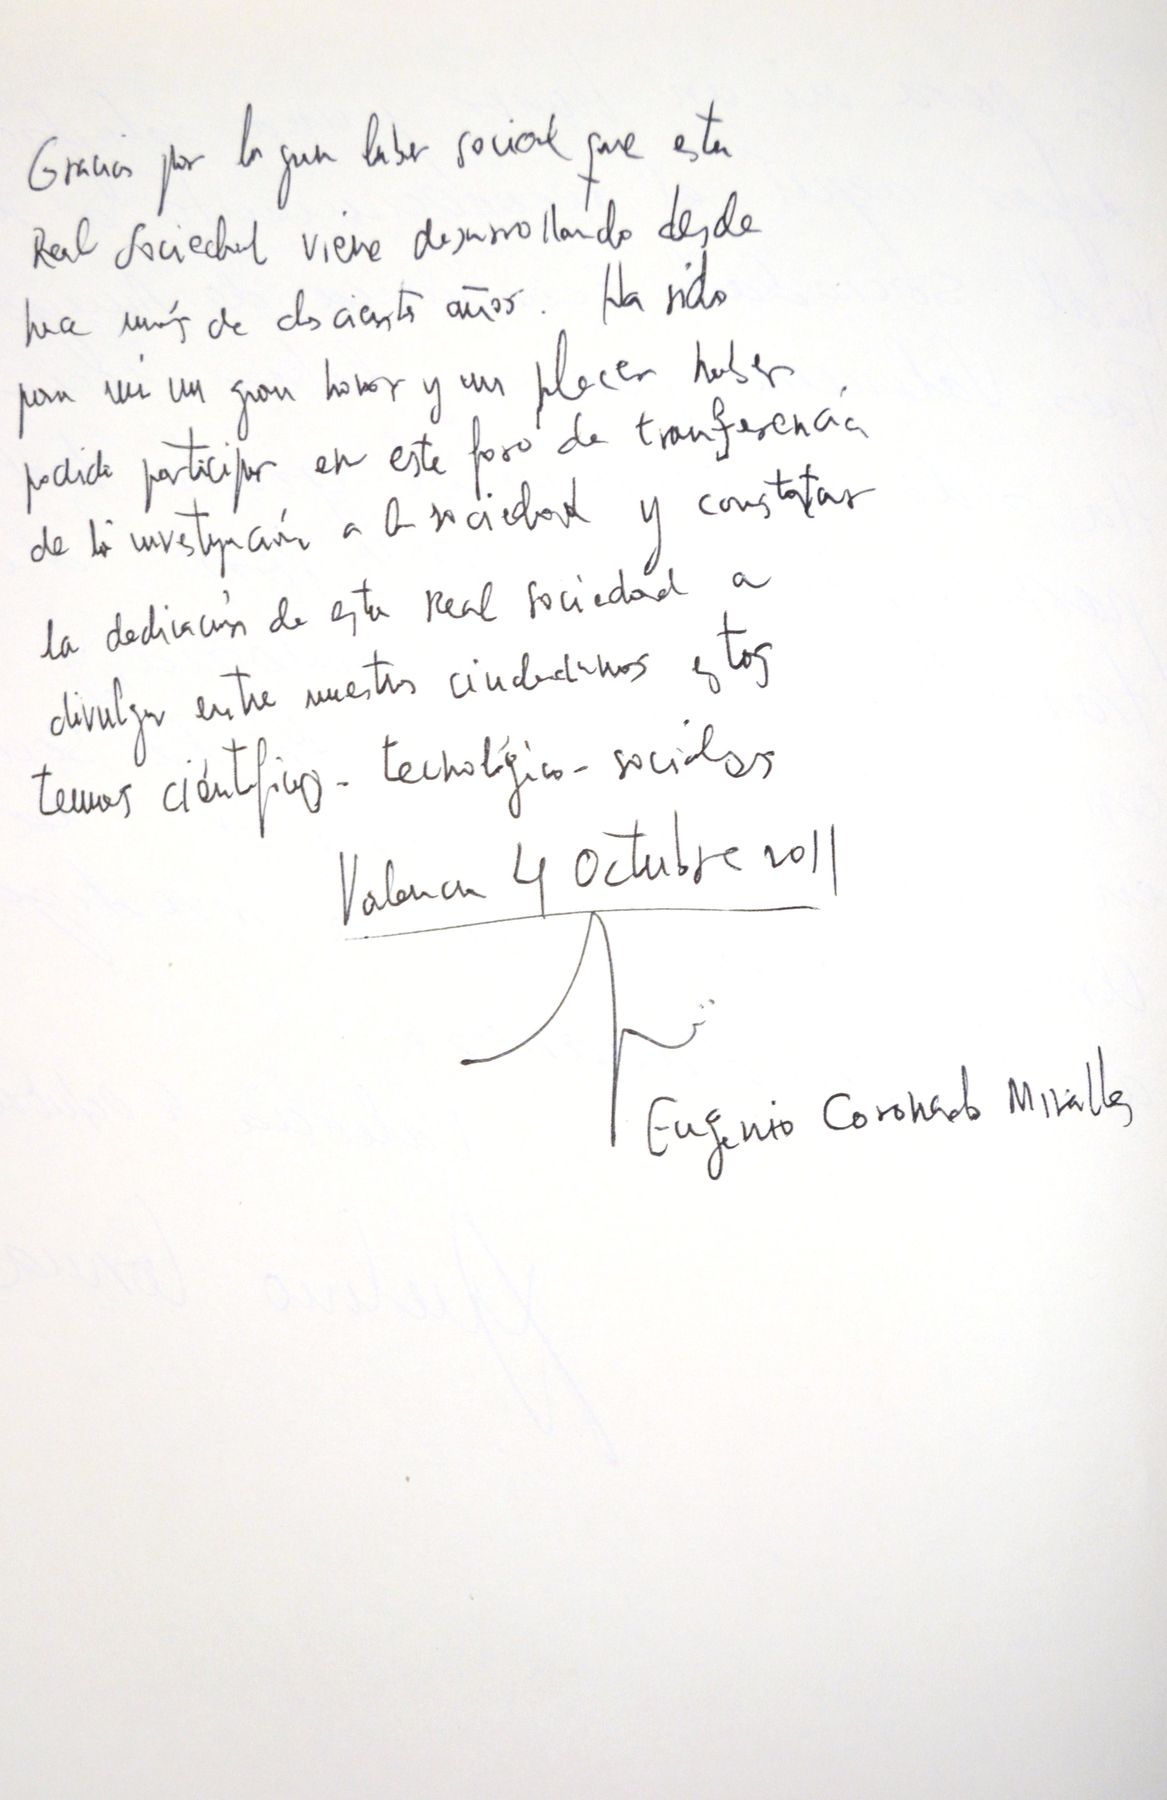 Gracias por la gran labor social que esta
Real Sociedad viene desarrollando desde
hace más de doscientos años. Ha sido
para mi un gran honor y un placer haber
podido participar en este foro de tranferencia
de la investigación a la sociedad y constatar
la dedicación de esta Real Sociedad a
divulgar entre nuestros ciudadanos estos
temas científico-tecnológico-sociales
Valencia 4 Octubre 2011
Eugenio Coronado Miralles